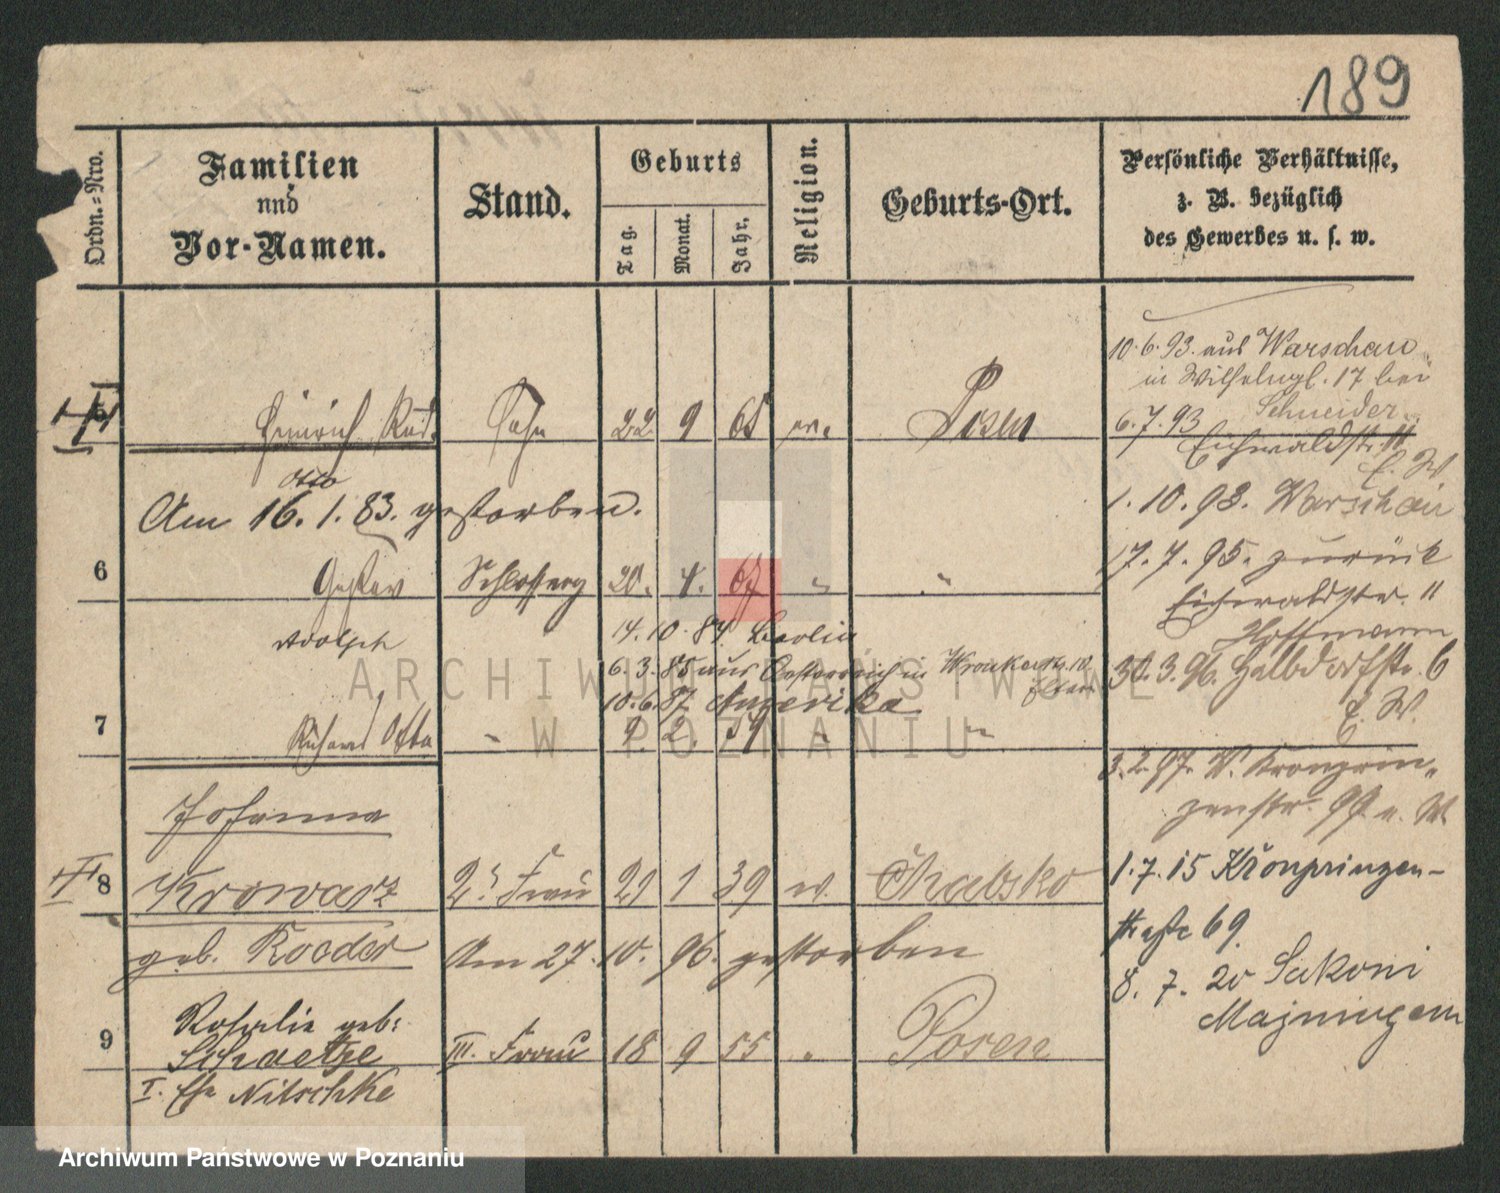 189
Ordn.-Nro.
Familien
und
Vor-Namen.
Stand.
Geburts
Tag.
Monat.
Jahr.
Religion.
Geburts-Ort.
Persönliche Verhältnisse,
z. B. bezüglich
des Gewerbes u. s. w.
10.6.93. aus Warschau
in 17 bei
Schneider
5 Heinrich Rud. Sohn 22 9 65 ev. Posen
6.7.93
Eichwaldstr. 11
E. W
Otto
Am 16.1.83. gestorben.
1.10.93. Warschau
6 Gustav 20. 4. 67 " "
17.7.95. zurück
Eichwaldstr. 11
Hoffmann
Adolph
14.10.84. Berlin
6.3.85 aus Oesterreich in
10.6.87. Amerika
30.3.96. Halbdorfstr. 6
E. W.
7 Richard Otto " 9. 2. "  "
3.2.97. W. Kronprin-
zenstr. 99 a. W
Johanna
8 Krowarz 2. Frau 21 1 39 ev.
1.7.15 Kronprinzen-
straße 69.
geb. Roeder Am 27.10.96. gestorben
8. 7. 20
Rosalie geb:
9 Schuetze III. Frau 18 9 55 " Posen
I. Ehe Nitschke
ARCHIWUM PAŃSTWOWE
W POZNANIU
Archiwum Państwowe w Poznaniu